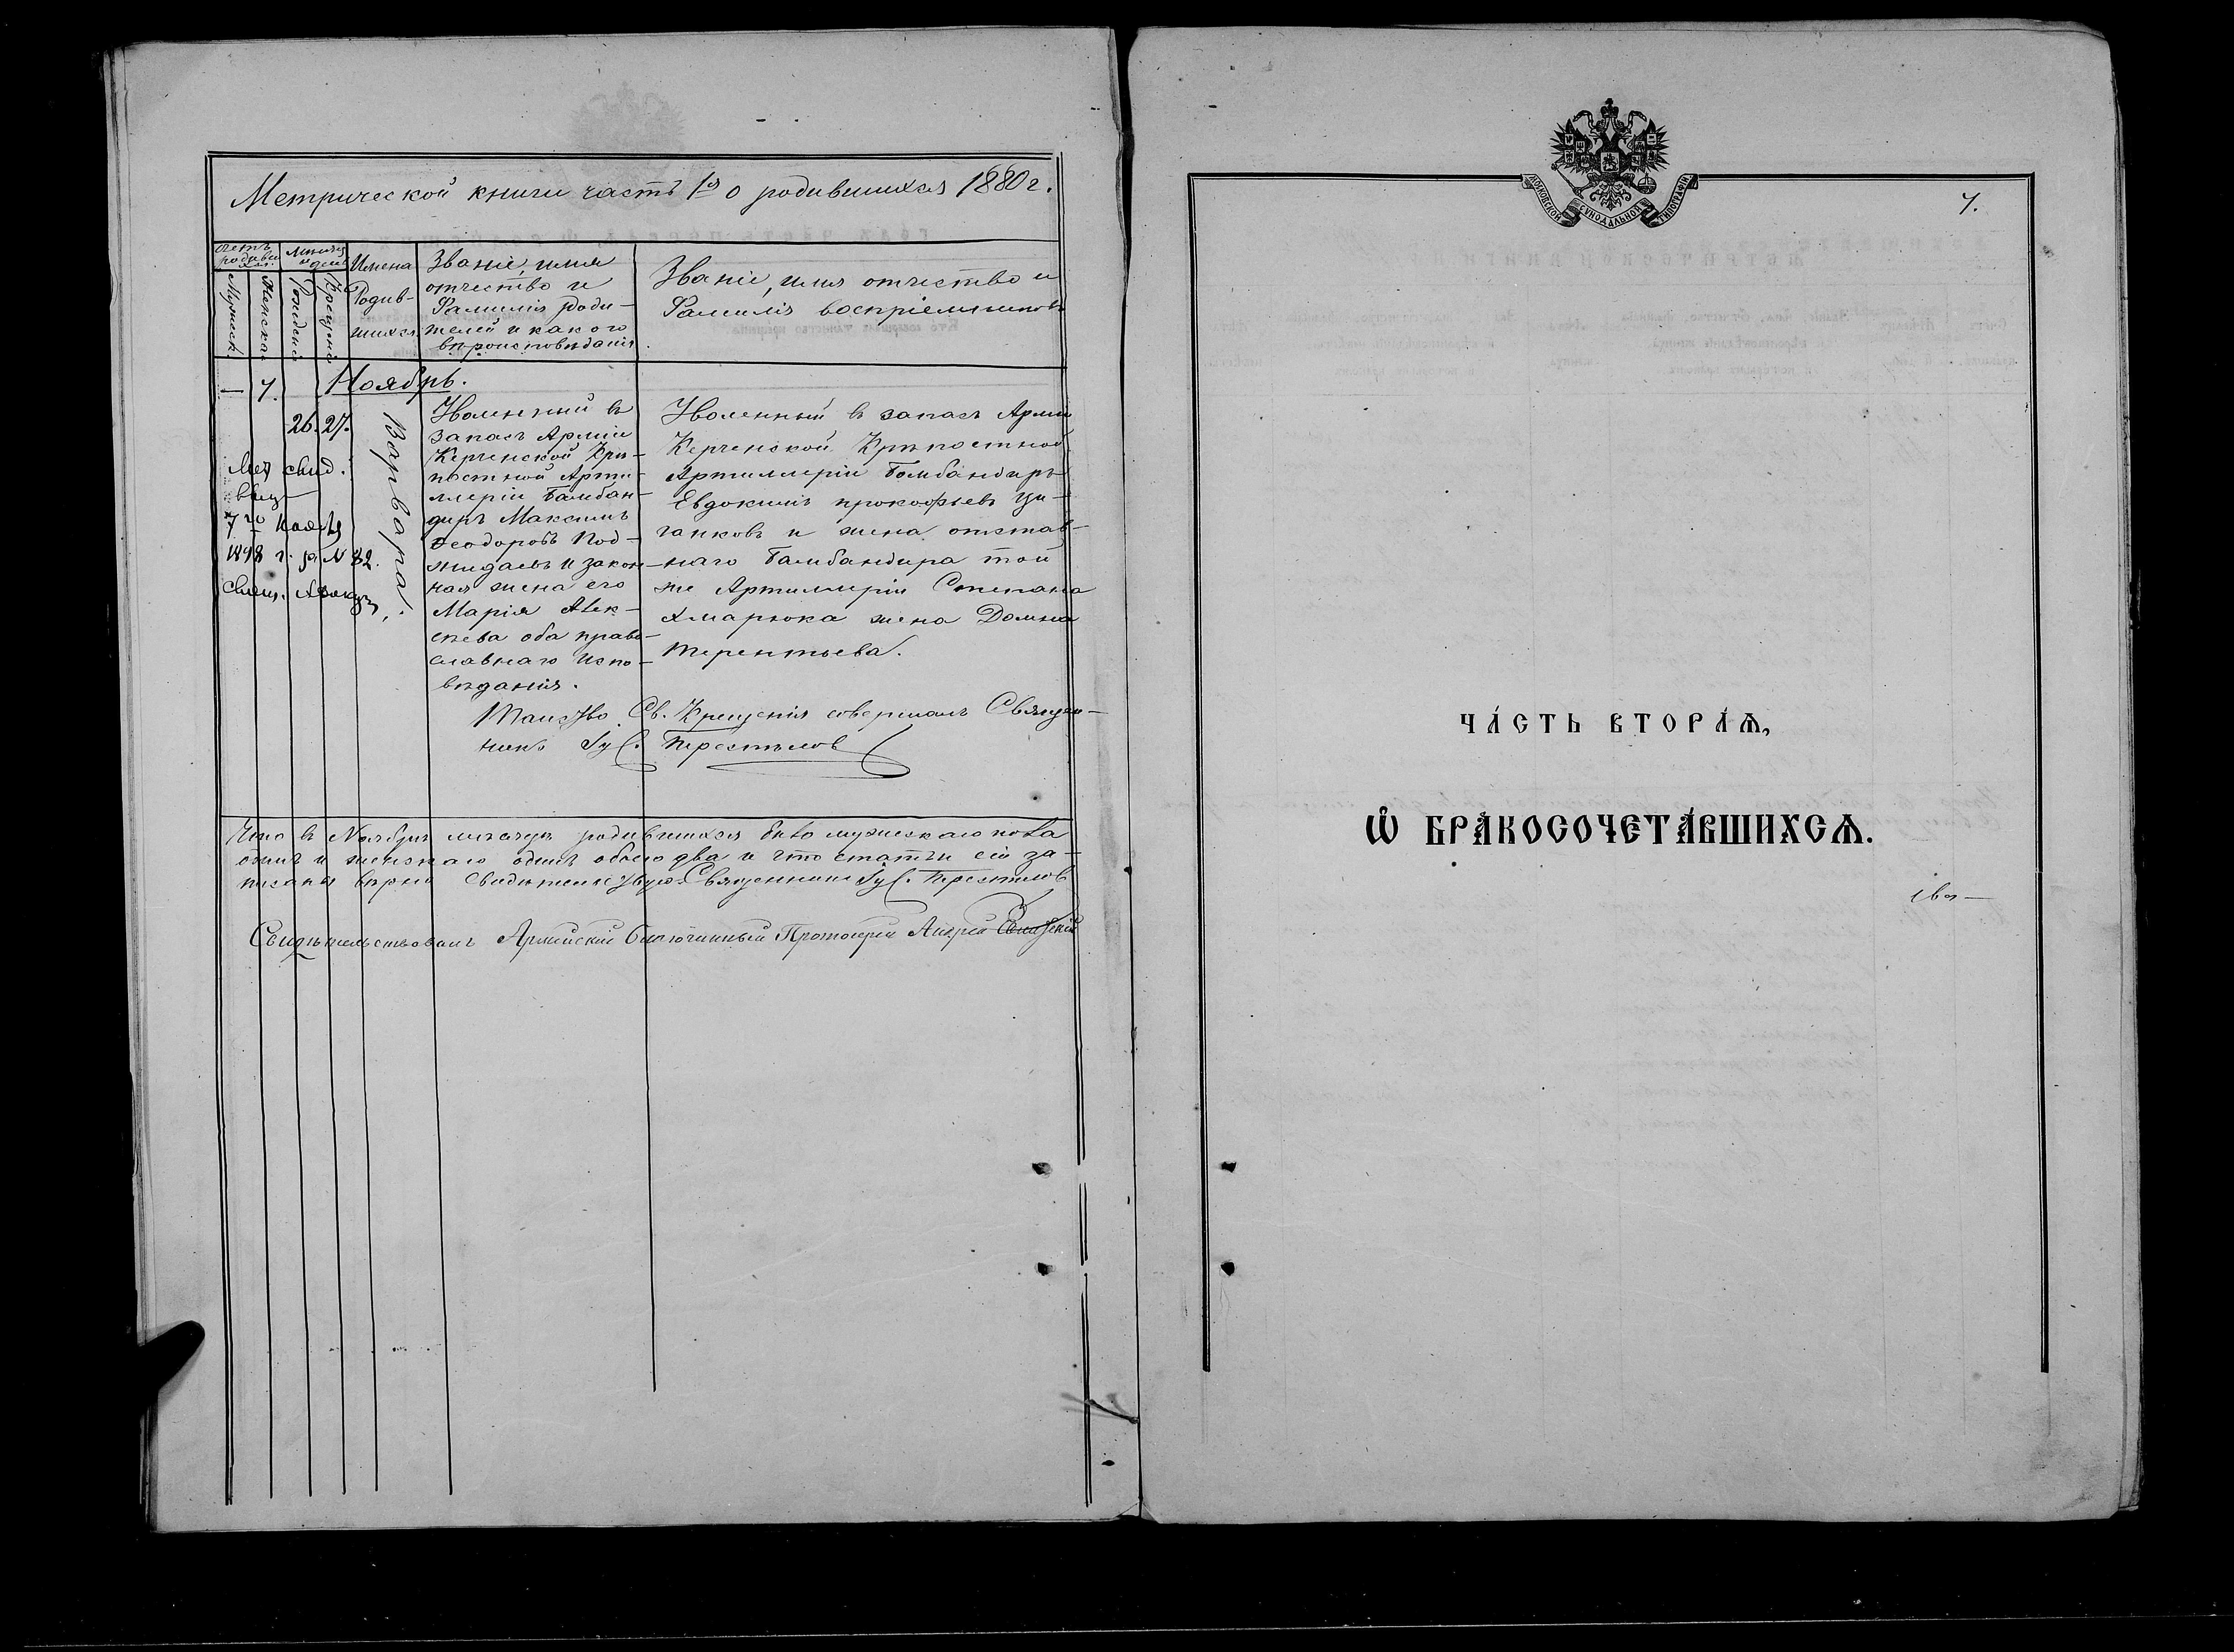 Метрической книги часть 1я о родившихся 1880 г.
Счетъ родивш-ихся.
Мѣсяцъ и день
Мужеск.
Женска
Рожденiя
Крещенiя
Имена
Родив-
шихся
Званiе, имя
отчество и
Фамилiя роди-
телей и какого
вѣроисповѣданiя
Званiе, имя отчество и
Фамилiя воспрiемниковъ
— 7. Ноябрь.
26. 27.
Варвара.
Мет свид.
выд
7го Ноября
1898 г. за № 82.
Свящ.
Уволенный въ
запасъ Армiи
Керченской Крѣ-
постной Арти-
ллерiи Бамбан-
диръ Максимъ
Ѳеодоровъ Под-
жидаевъ и закон-
ная жена его
Марiя Алек-
сѣева оба право-
славнаго испо-
вѣданiя.
Уволенный въ запасъ Армiи
Керченской Крѣпостной
Артиллерiи Бомбандиръ
Евдокимъ Прокофьевъ Цы-
ганковъ и жена отстав-
наго Бамбандира той
же Артиллерiи Степана
Хмарюка жена Домна
Терентьева.
Таинство Св. Крещенiя совершалъ Священ-
никъ
Что въ Ноябрѣ мѣсяцѣ родившихся было мужскаго пола
одинъ и женскаго одинъ обоего два и что статьи сiи за-
писаны вѣрно Свидѣтельствую Священникъ
Свидѣтельствовалъ Армейскiй Благочинный Протоiерей Андрей
МОСКОВСКОЙ СѴНОДАЛЬНОЙ ТИПОГРАФIИ
7.
ЧА́СТЬ ВТОРА́Ѧ,
Ѽ БРАКОСОЧЕТА́ВШИХСѦ.